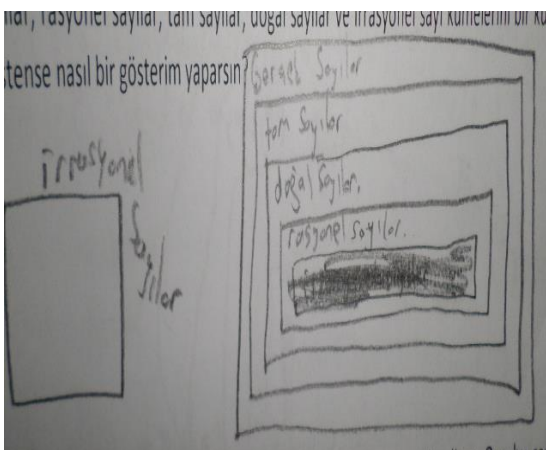 rasyonel sayılar, tam sayılar, doğal sayılar ve irrasyonel sayı kümelerini bir
stense nasıl bir gösterim yaparsın?
gerçek Sayılar
tam Sayılar
doğal Sayılar.
rasyonel sayılar.
irrasyonel
Sayılar